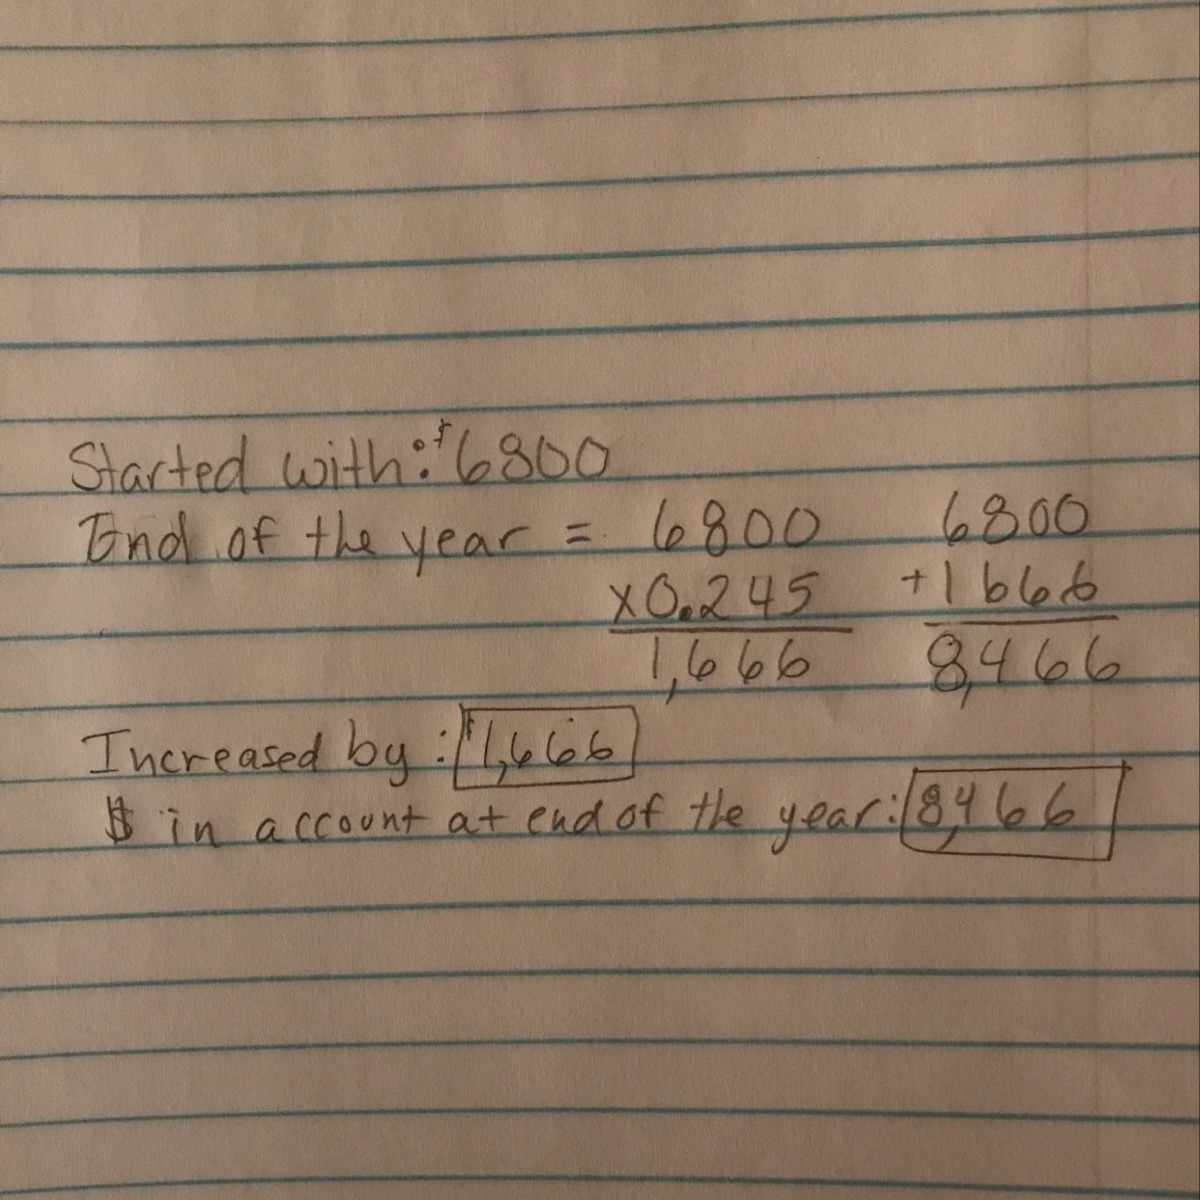 Started with: $6800
End of the year = 6800 6800
x0.245 +1666
1,666 8,466
Increased by: $1,666
$ in account at end of the year: 8,466